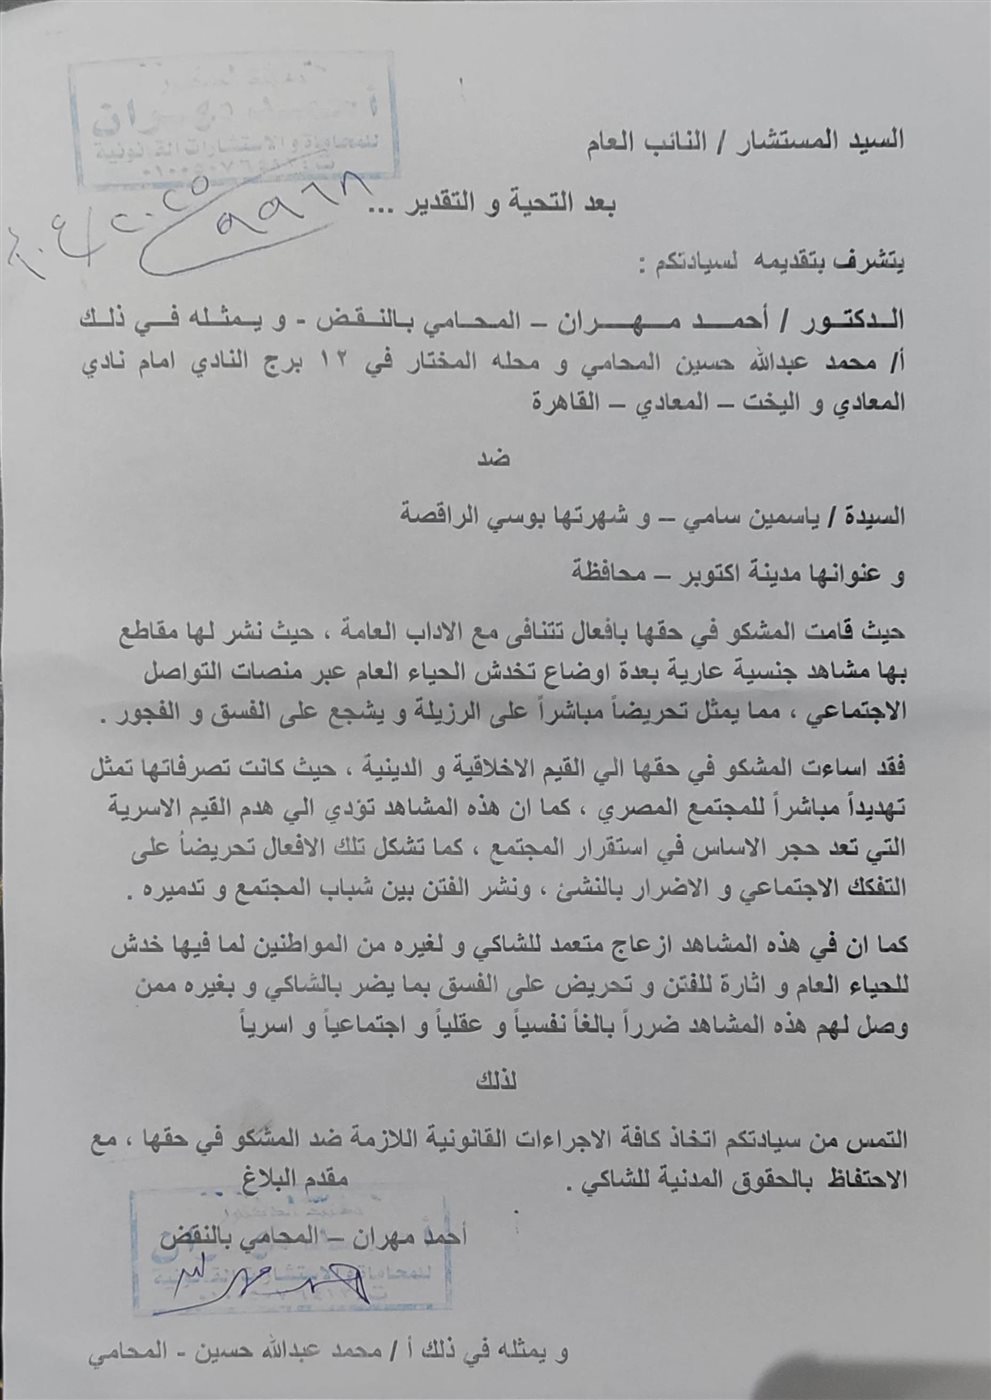 للمحاماة والاستشارات القانونية
السيد المستشار / النائب العام
٩٩٦٨
بعد التحية و التقدير ...
يتشرف بتقديمه لسيادتكم :
الدكتور / أحمد مهران – المحامي بالنقض - و يمثله في ذلك
أ/ محمد عبدالله حسين المحامي و محله المختار في ١٢ برج النادي امام نادي
المعادي و اليخت – المعادي – القاهرة
ضد
السيدة / ياسمين سامي – و شهرتها بوسي الراقصة
و عنوانها مدينة اكتوبر – محافظة
حيث قامت المشكو في حقها بافعال تتنافى مع الاداب العامة ، حيث نشر لها مقاطع
بها مشاهد جنسية عارية بعدة اوضاع تخدش الحياء العام عبر منصات التواصل
الاجتماعي ، مما يمثل تحريضاً مباشراً على الرزيلة و يشجع على الفسق و الفجور .
فقد اساءت المشكو في حقها الي القيم الاخلاقية و الدينية ، حيث كانت تصرفاتها تمثل
تهديداً مباشراً للمجتمع المصري ، كما ان هذه المشاهد تؤدي الي هدم القيم الاسرية
التي تعد حجر الاساس في استقرار المجتمع ، كما تشكل تلك الافعال تحريضاً على
التفكك الاجتماعي و الاضرار بالنشئ ، ونشر الفتن بين شباب المجتمع و تدميره .
كما ان في هذه المشاهد ازعاج متعمد للشاكي و لغيره من المواطنين لما فيها خدش
للحياء العام و اثارة للفتن و تحريض على الفسق بما يضر بالشاكي و بغيره ممن
وصل لهم هذه المشاهد ضرراً بالغاً نفسياً و عقلياً و اجتماعياً و اسرياً
لذلك
التمس من سيادتكم اتخاذ كافة الاجراءات القانونية اللازمة ضد المشكو في حقها ، مع
الاحتفاظ بالحقوق المدنية للشاكي .
مقدم البلاغ
أحمد مهران – المحامي بالنقض
للمحاماة والاستشارات القانونية
و يمثله في ذلك أ / محمد عبدالله حسين - المحامي